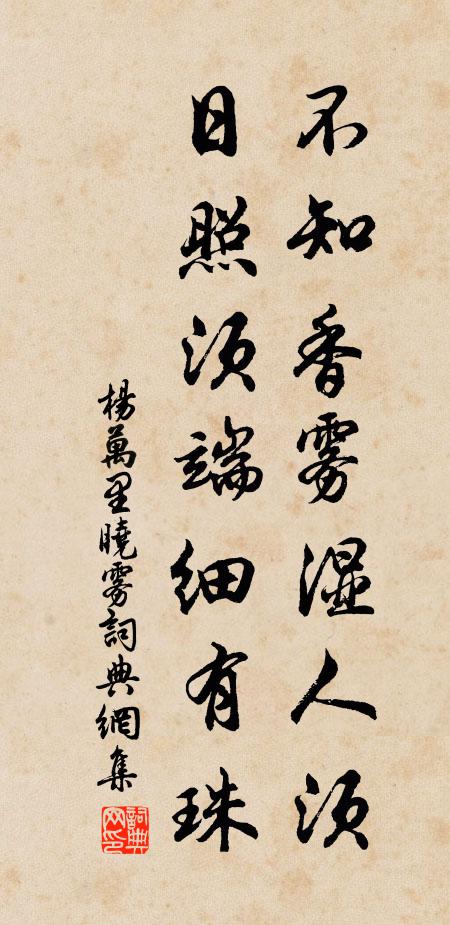 不知香雾湿人须
日照须端细有珠
楊萬里曉雾詞典網集
詞典网印